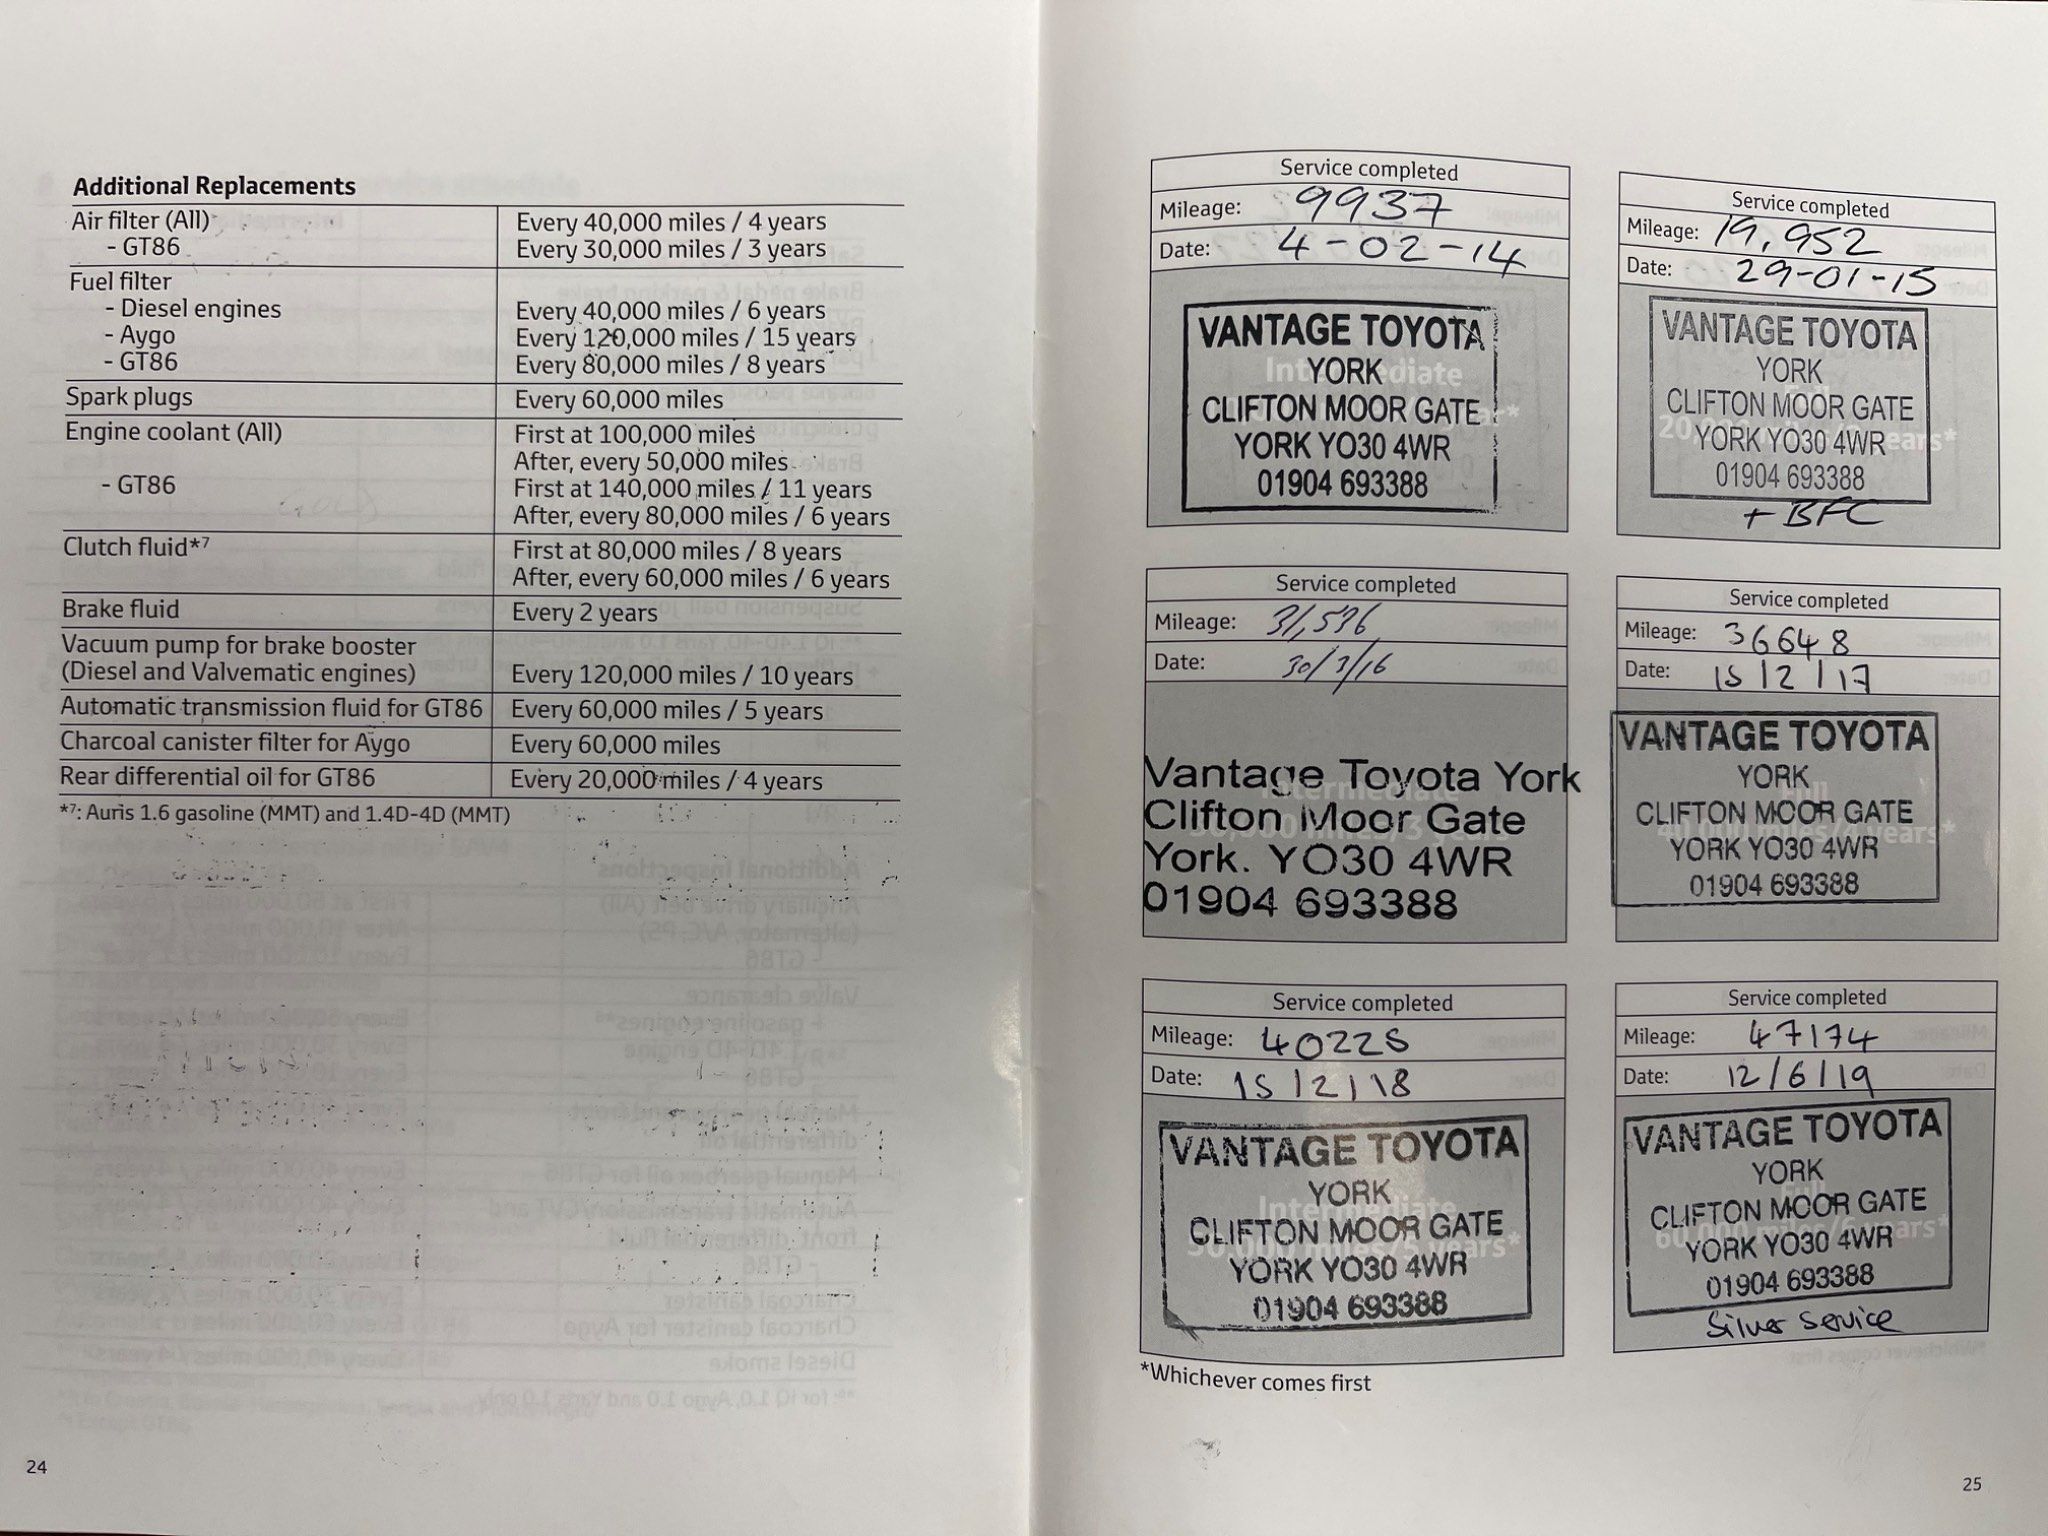 Additional Replacements
Air filter (All) Every 40,000 miles / 4 years
- GT86 Every 30,000 miles / 3 years
Fuel filter
- Diesel engines Every 40,000 miles / 6 years
- Aygo Every 120,000 miles / 15 years
- GT86 Every 80,000 miles / 8 years
Spark plugs Every 60,000 miles
Engine coolant (All) First at 100,000 miles
After, every 50,000 miles
- GT86 First at 140,000 miles / 11 years
After, every 80,000 miles / 6 years
Clutch fluid*7 First at 80,000 miles / 8 years
After, every 60,000 miles / 6 years
Brake fluid Every 2 years
Vacuum pump for brake booster
(Diesel and Valvematic engines) Every 120,000 miles / 10 years
Automatic transmission fluid for GT86 Every 60,000 miles / 5 years
Charcoal canister filter for Aygo Every 60,000 miles
Rear differential oil for GT86 Every 20,000 miles / 4 years
*7: Auris 1.6 gasoline (MMT) and 1.4D-4D (MMT)
24
Service completed
Mileage: 9937
Date: 4-02-14
VANTAGE TOYOTA
YORK
Intermediate
CLIFTON MOOR GATE
YORK YO30 4WR
01904 693388
Service completed
Mileage: 19,952
Date: 29-01-15
VANTAGE TOYOTA
YORK
Full
CLIFTON MOOR GATE
20,000 miles/2 years*
YORK YO30 4WR
01904 693388
+ BFC
Service completed
Mileage: 31,536
Date: 30/3/16
Vantage Toyota York
Intermediate
Clifton Moor Gate
York. YO30 4WR
01904 693388
Service completed
Mileage: 36648
Date: 15/2/17
VANTAGE TOYOTA
YORK
Full
CLIFTON MOOR GATE
40,000 miles/4 years*
YORK YO30 4WR
01904 693388
Service completed
Mileage: 40225
Date: 15/2/18
VANTAGE TOYOTA
YORK
Intermediate
CLIFTON MOOR GATE
50,000 miles/5 years*
YORK YO30 4WR
01904 693388
Service completed
Mileage: 47174
Date: 12/6/19
VANTAGE TOYOTA
YORK
Full
CLIFTON MOOR GATE
60,000 miles/6 years*
YORK YO30 4WR
01904 693388
Silver Service
*Whichever comes first
25